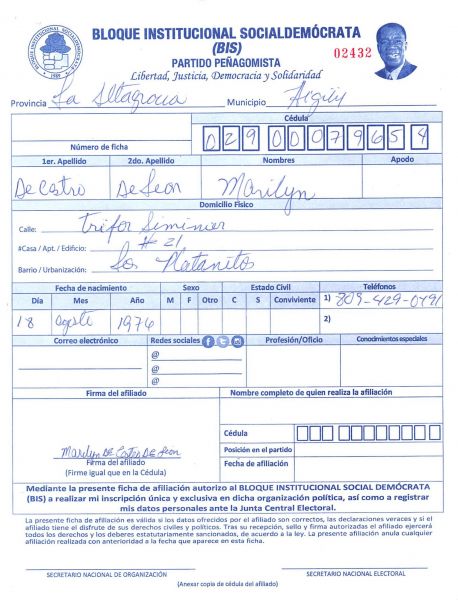 BLOQUE INSTITUCIONAL SOCIALDEMÓCRATA
(BIS)
02432
PARTIDO PEÑAGOMISTA
Libertad, Justicia, Democracia y Solidaridad
BLOQUE INSTITUCIONAL SOCIALDEMÓCRATA
1989
Provincia La Altagracia Municipio
Cédula
02900079654
Número de ficha
1er. Apellido 2do. Apellido Nombres Apodo
De Castro De Leon Marilyn
Domicilio Físico
Calle:
#Casa / Apt. / Edificio: # 21
Barrio / Urbanización: Los Platanitos
Fecha de nacimiento Sexo Estado Civil Teléfonos
Día Mes Año M F Otro C S Conviviente 1) 809-429-0791
18 agosto 1976 2)
Correo electrónico Redes sociales Profesión/Oficio Conocimientos especiales
@
@
@
Firma del afiliado Nombre completo de quien realiza la afiliación
Cédula
Marilyn De Castro De Leon
Posición en el partido
Firma del afiliado
(Firme igual que en la Cédula)
Fecha de afiliación
Mediante la presente ficha de afiliación autorizo al BLOQUE INSTITUCIONAL SOCIAL DEMÓCRATA
(BIS) a realizar mi inscripción única y exclusiva en dicha organización política, así como a registrar
mis datos personales ante la Junta Central Electoral.
La presente ficha de afiliación es válida si los datos ofrecidos por el afiliado son correctos, las declaraciones veraces y si el
afiliado tiene el disfrute de sus derechos civiles y políticos. Tras su recepción, sello y firma autorizadas el afiliado ejercerá
todos los derechos y los deberes estatutariamente sancionados, de acuerdo a la ley. La presente afiliación anula cualquier
afiliación realizada con anterioridad a la fecha que aparece en esta ficha.
SECRETARIO NACIONAL DE ORGANIZACIÓN SECRETARIO NACIONAL ELECTORAL
(Anexar copia de cédula del afiliado)